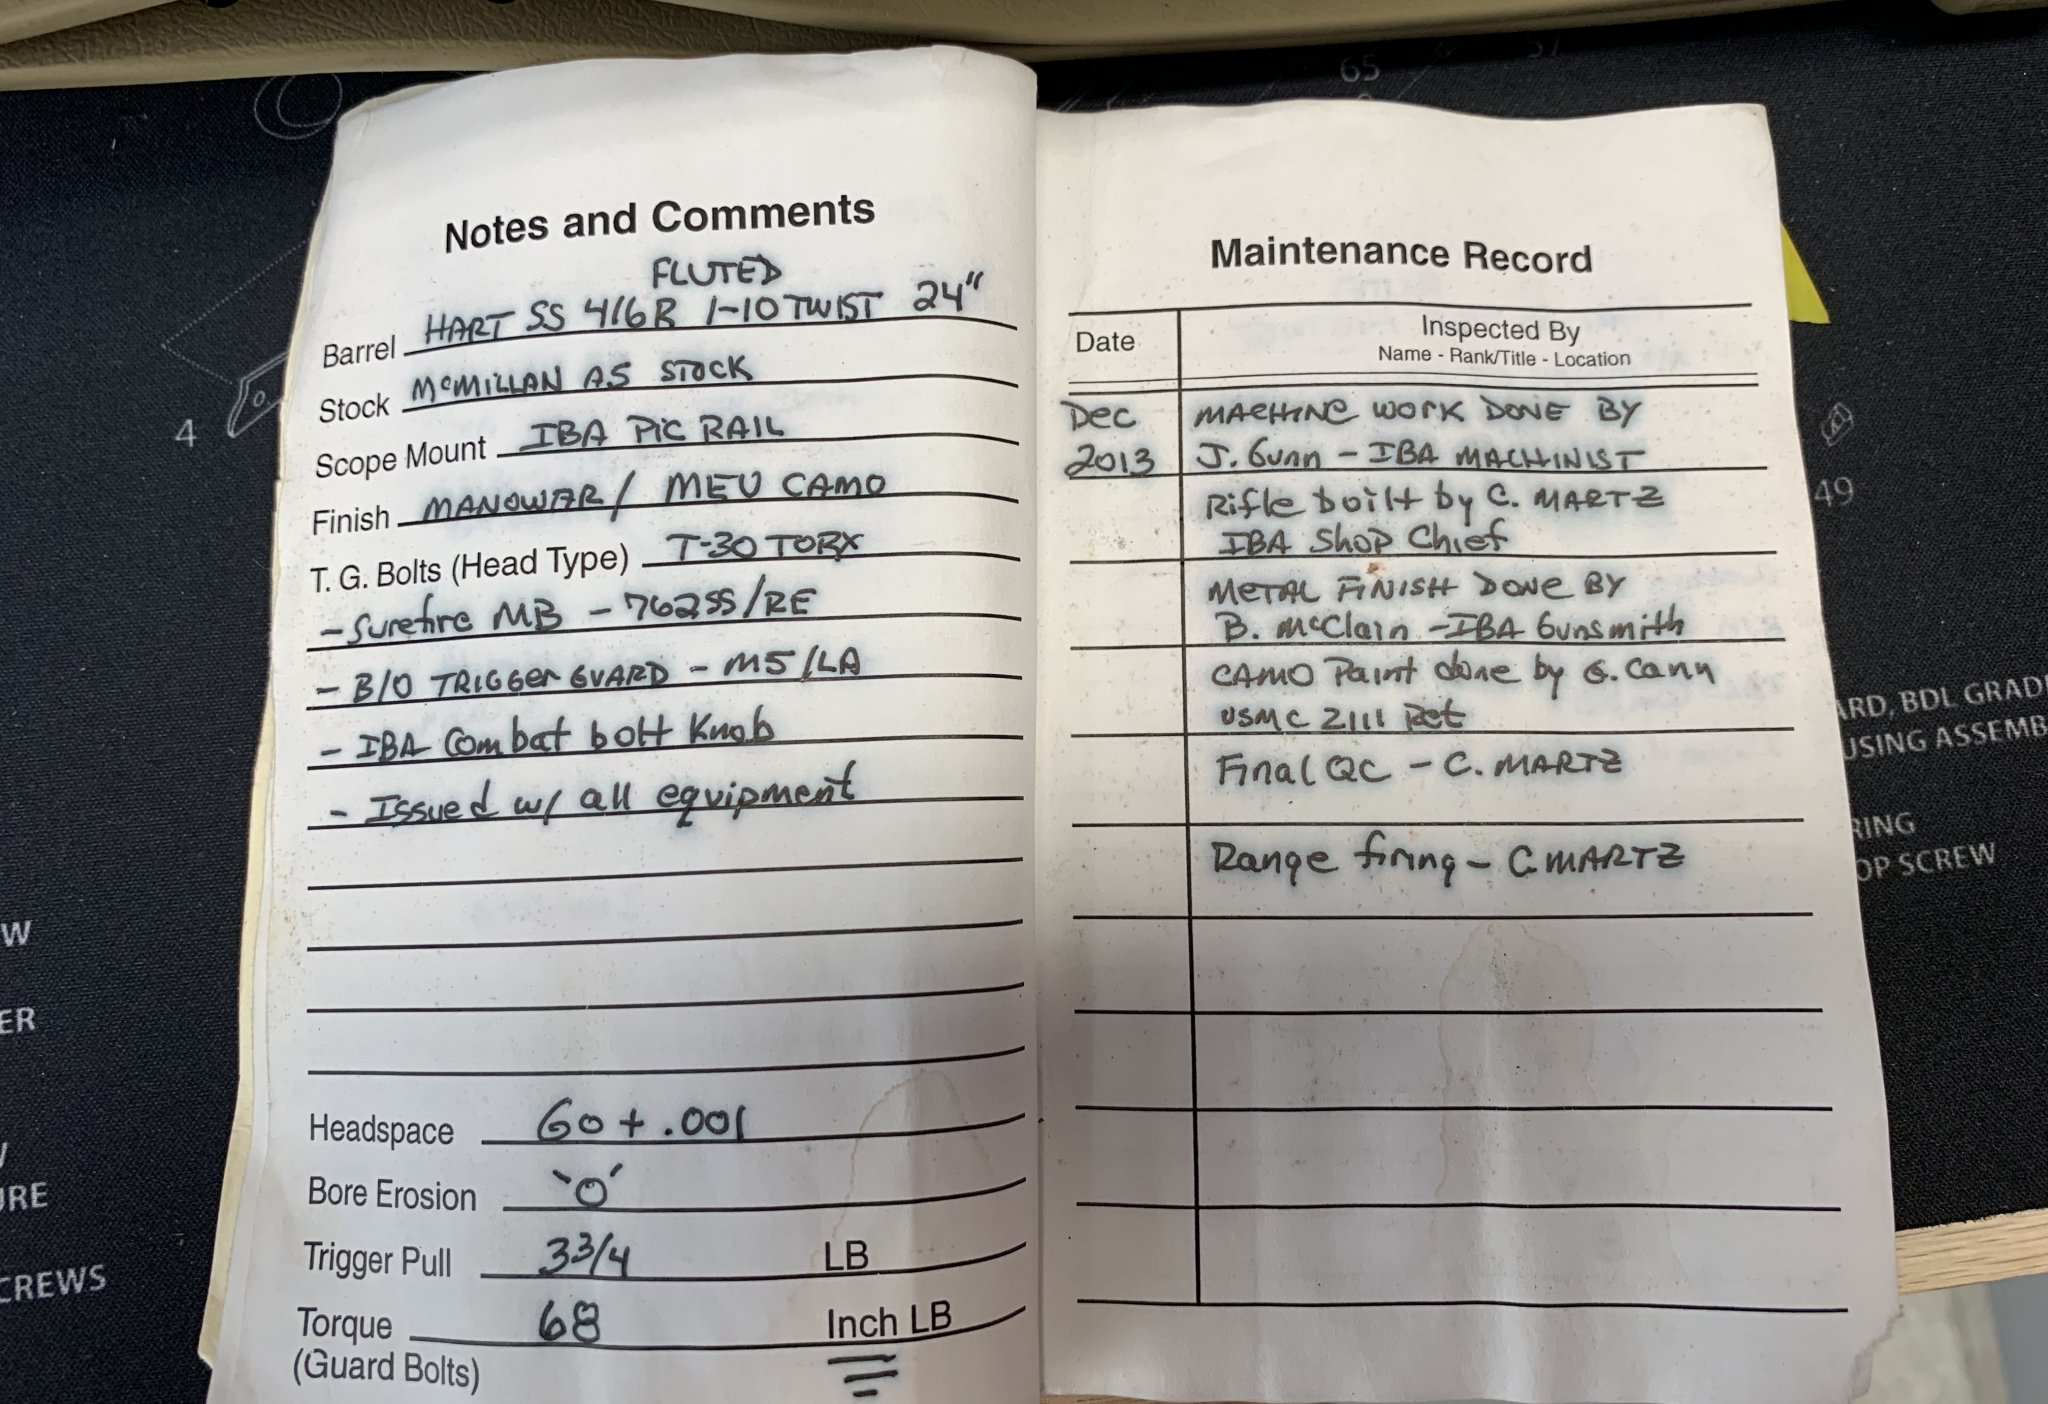 Notes and Comments
FLUTED
Barrel HART SS 416R 1-10 TWIST 24"
Stock McMILLAN A5 STOCK
Scope Mount IBA PIC RAIL
Finish MANOWAR / MEU CAMO
T. G. Bolts (Head Type) T-30 TORX
- Surefire MB - 762SS/RE
- B/O TRIGGER GUARD - M5/LA
- IBA Combat bolt Knob
- Issued w/ all equipment
Headspace Go + .001
Bore Erosion '0'
Trigger Pull 3 3/4 LB
Torque 68 Inch LB
(Guard Bolts)
Maintenance Record
Date Inspected By
Name - Rank/Title - Location
Dec MACHINE WORK DONE BY
2013 J. Gunn - IBA MACHINIST
Rifle built by C. MARTZ
IBA Shop Chief
METAL FINISH DONE BY
B. McClain - IBA Gunsmith
CAMO Paint done by G. Cann
USMC 2111 Ret
Final QC - C. MARTZ
Range firing - C. MARTZ
65
57
4
49
ARD, BDL GRADE
USING ASSEMB
RING
OP SCREW
W
ER
URE
CREWS